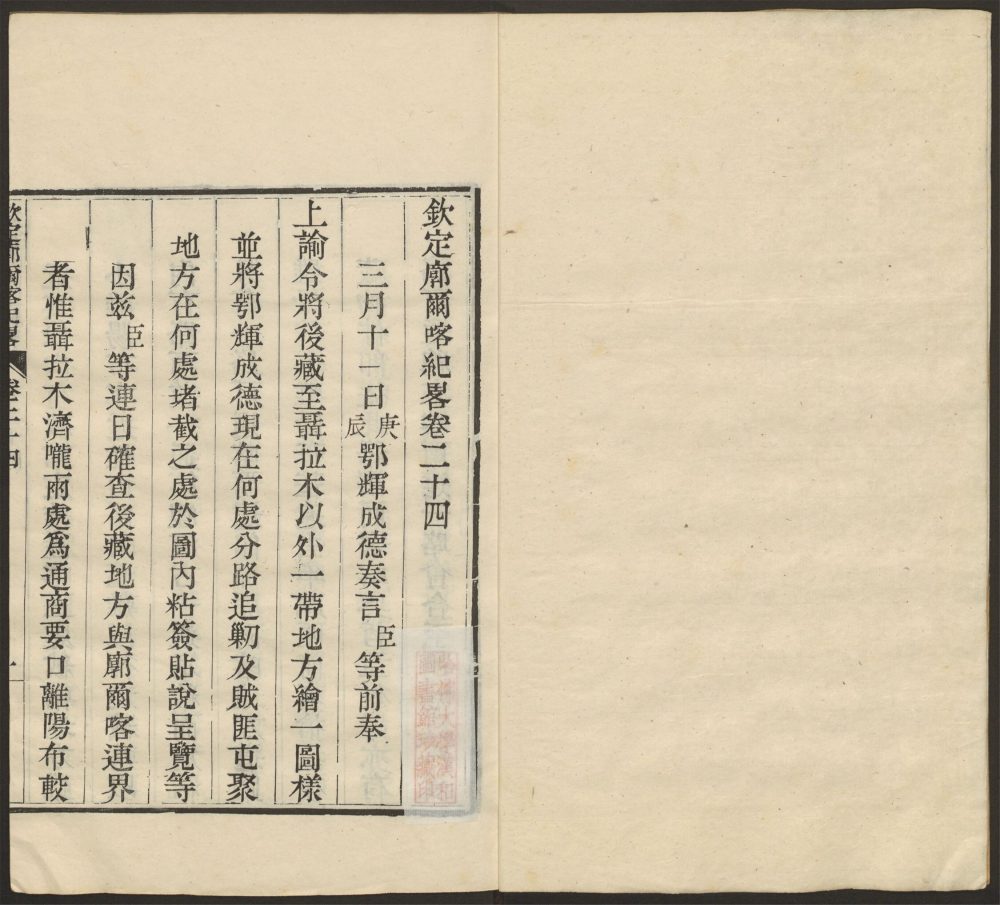 欽定廓爾喀紀畧卷二十四
三月十一日庚辰鄂輝成德奏言臣等前奉
上諭令將後藏至聶拉木以外一帶地方繪一圖樣
並將鄂輝成德現在何處分路追剿及賊匪屯聚
地方在何處堵截之處於圖內粘簽貼說呈覽等
因玆臣等連日確查後藏地方與廓爾喀連界
者惟聶拉木濟嚨兩處爲通商要口離陽布較
欽定廓爾喀紀畧 卷二十四 一